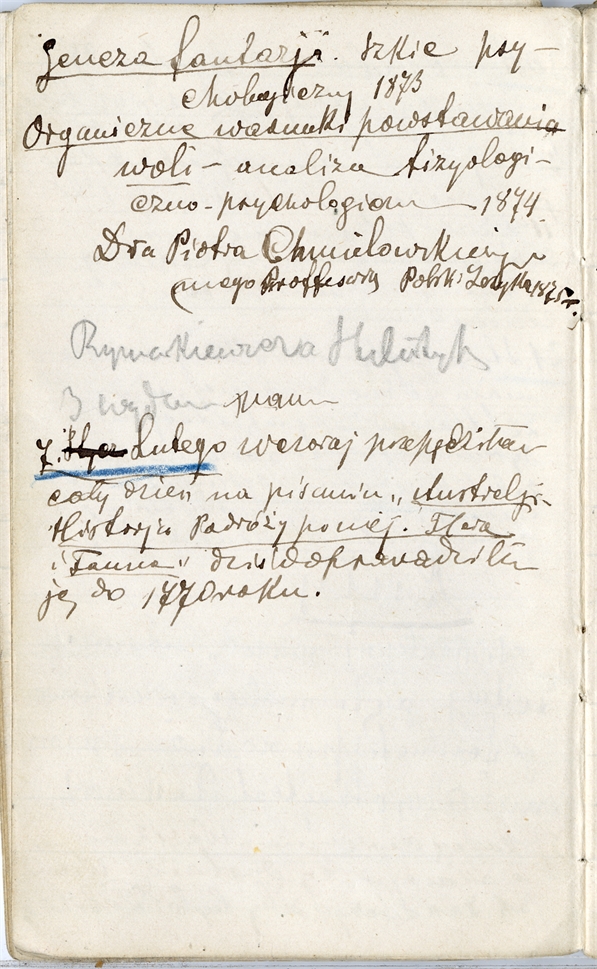 Geneza fantazji. Szkic psy-
chologiczny 1873
Organiczne warunki powstawania
woli - analiza fizyologi-
czno-psychologiczna 1874
Dra Piotra Chmielowskiego
mego Proffesora Polski Języka 1875 r.
Rymarkiewicza
3
7. Lutego wczoraj przepędziłam
cały dzień na pisaniu „Australji
Historja Podróży po niej. Flora
i Fauna" dziś doprowadziłam
ją do 1770 roku.